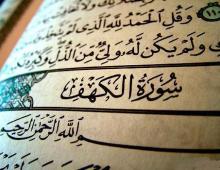 وَقُلِ ٱلْحَمْدُ لِلَّهِ ٱلَّذِى لَمْ
وَلَمْ يَكُن لَّهُۥ وَلِىٌّ مِّنَ ٱلذُّلِّ وَكَبِّرْهُ
سُورَةُ الْكَهْفِ
ٱللَّهِ ٱلرَّحْمَٰنِ ٱلرَّحِيمِ